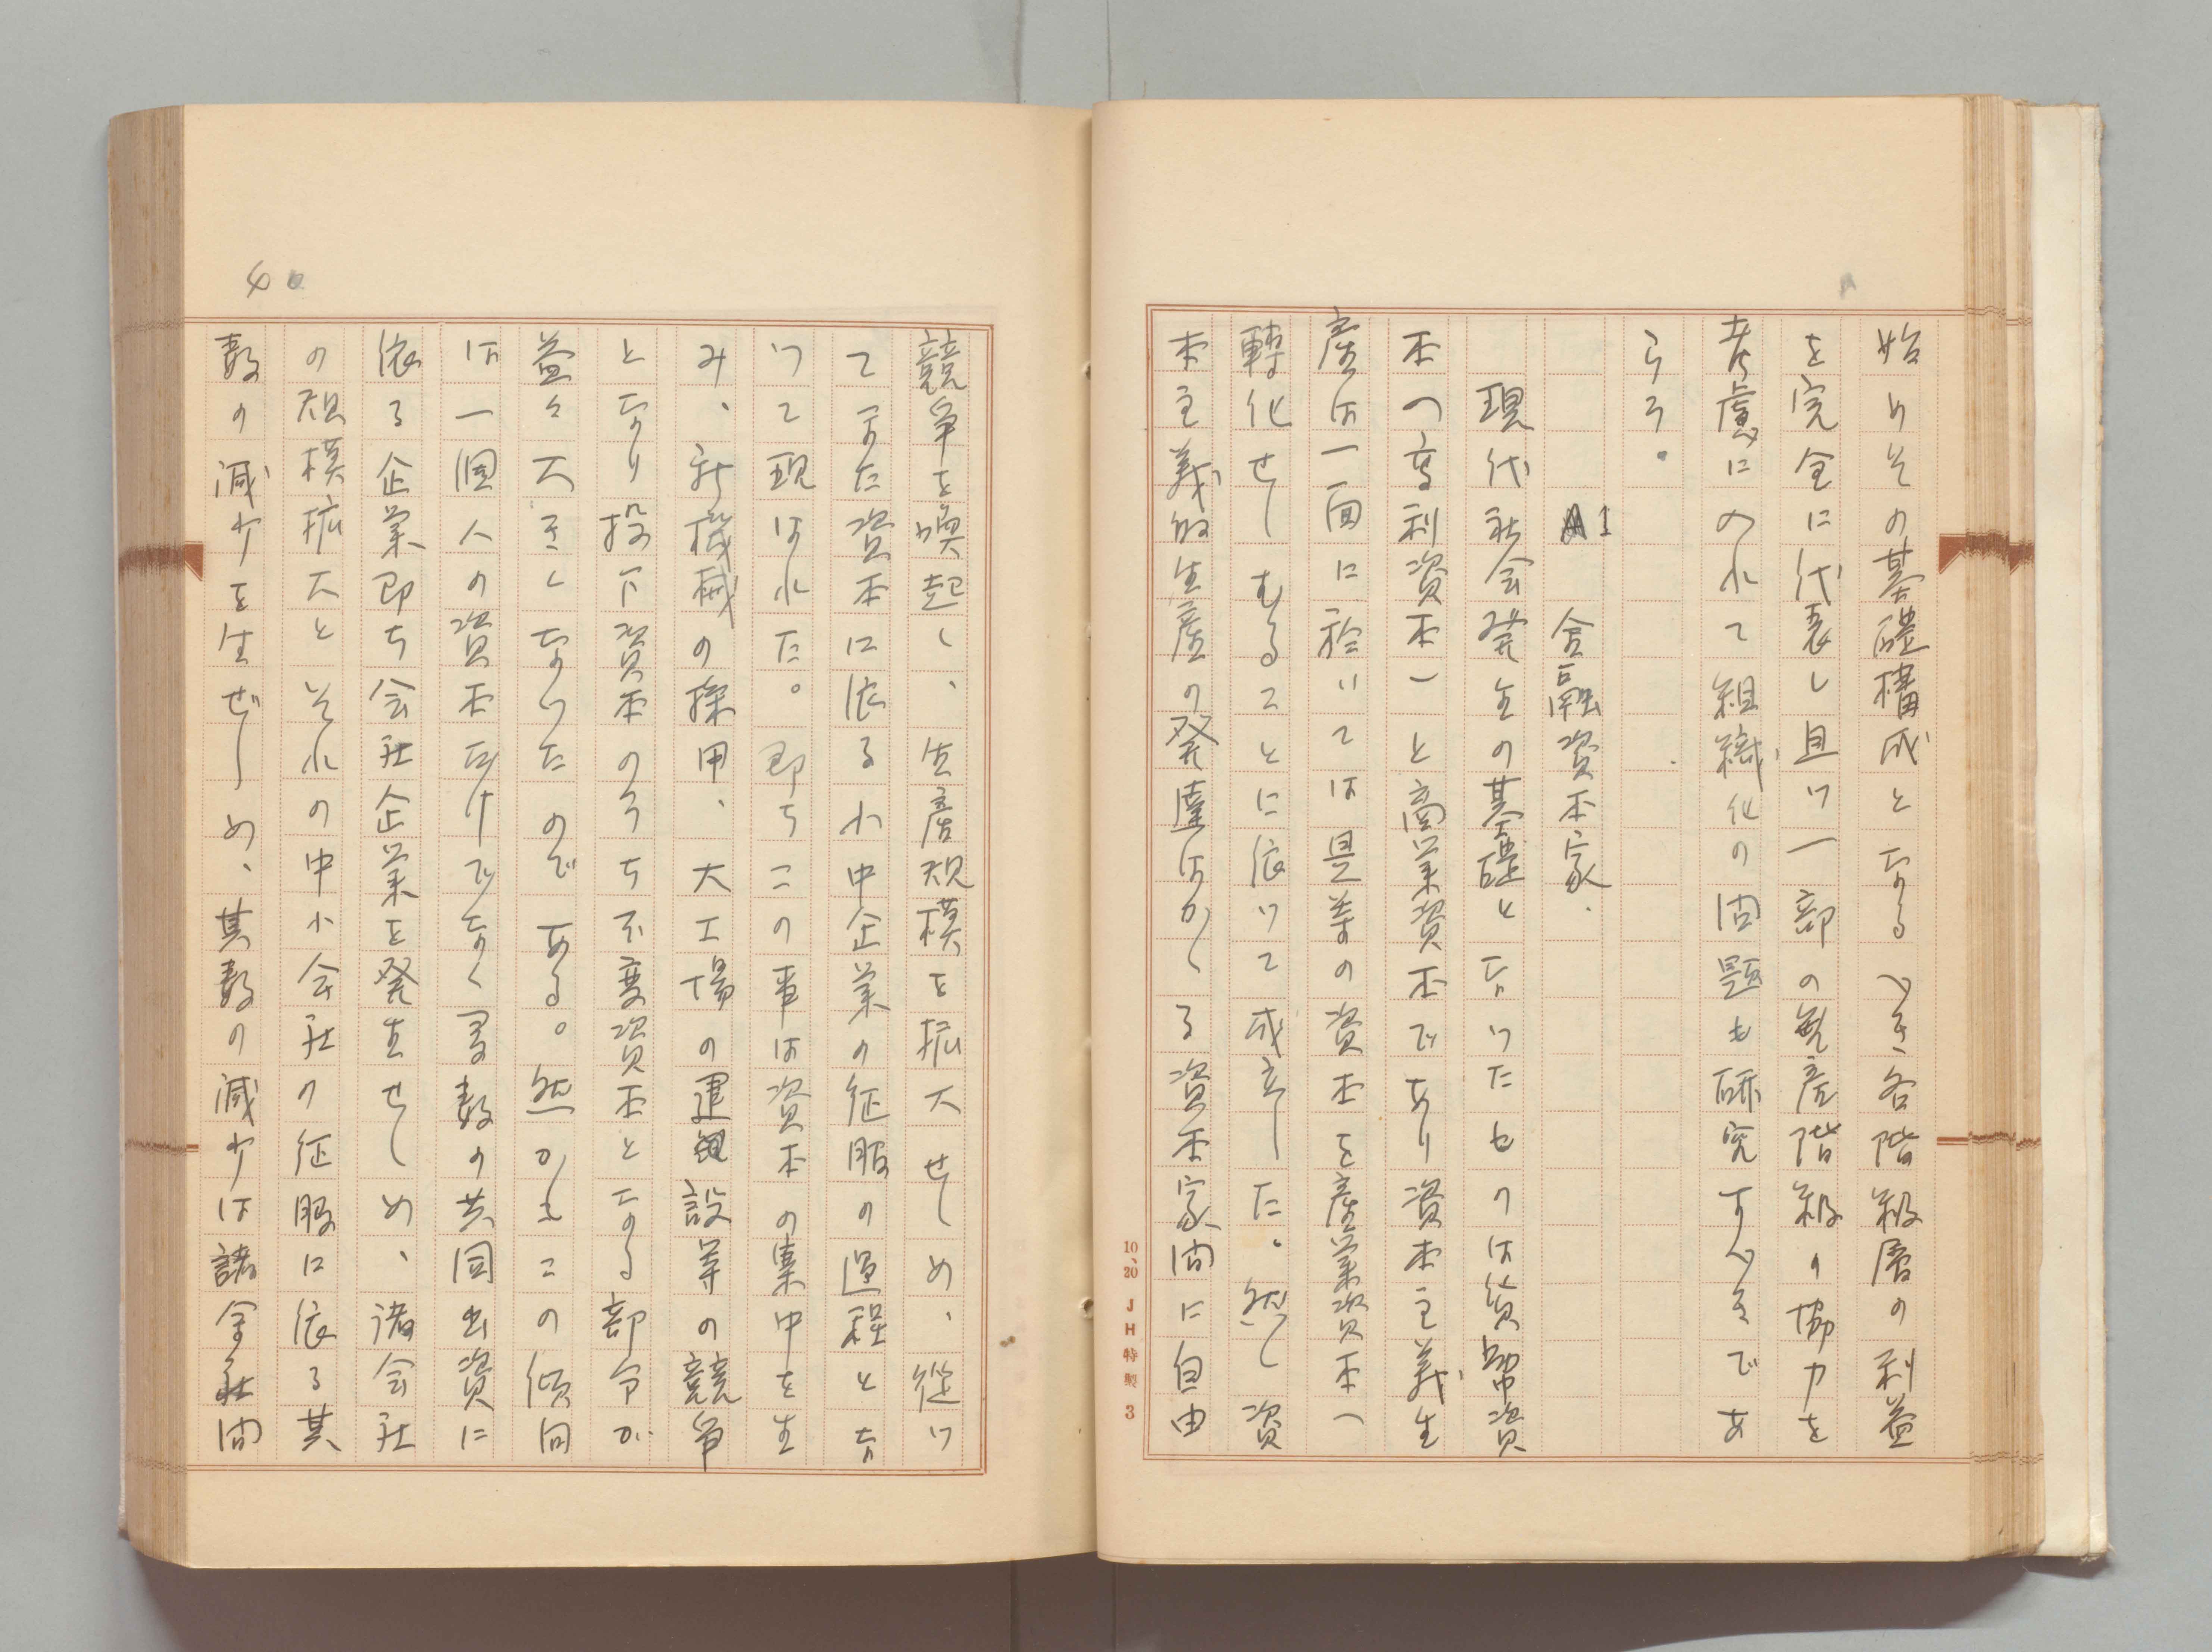 始めその基礎構成となるべき各階級層の利益
を完全に代表し且つ一部の無産階級の協力を
考慮にのれて組織化の問題も研究すべきであ
らう。
1 金融資本家.
現代社会発生の基礎となつたものは貨幣資
本(高利資本)と商業資本であり資本主義生
産は一面に於いては是等の資本を産業資本へ
轉化せしむることに依つて成立した。然し資
本主義的生産の発達はかゝる資本家間に自由
10、20 JH特製 3
競争を喚起し、生産規模を拡大せしめ、従つ
てまた資本に依る小中企業の征服の過程とな
つて現はれた。即ちこの事は資本の集中を生
み、新機械の採用、大工場の建設等の競争
となり投下資本のうち不変資本となる部分が
益々大きくなつたのである。然かもこの傾向
は一個人の資本だけでなく多数の共同出資に
依る企業即ち会社企業を発生せしめ、諸会社
の規模拡大とそれの中小会社の征服に依る其
数の減少を生ぜしめ、其数の減少は諸会社間
40